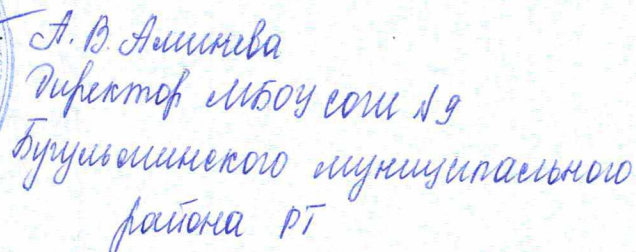 А. В. Аминева
Директор МБОУ СОШ №9
Бугульминского муниципального
района РТ